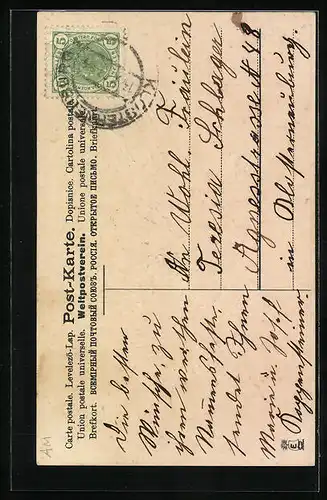 Carte postale. Levelező-Lap. Post-Karte. Dopisnice. Cartolina postale
Union postale universelle. Weltpostverein. Unione postale universale
Brefkort. ВСЕМІРНЫЙ ПОЧТОВЫЙ СОЮЗЪ. РОССІЯ. ОТКРЫТОЕ ПИСЬМО. Briefkaart
5 5
An Wohl. Fräulein
Teresia Schlager
Agnesstrasse # 48
in Klosterneuburg
Die besten
Wünsche zu
Ihrem werthen
Namensfeste
sendet Ihnen
Marie u. Josef
AM